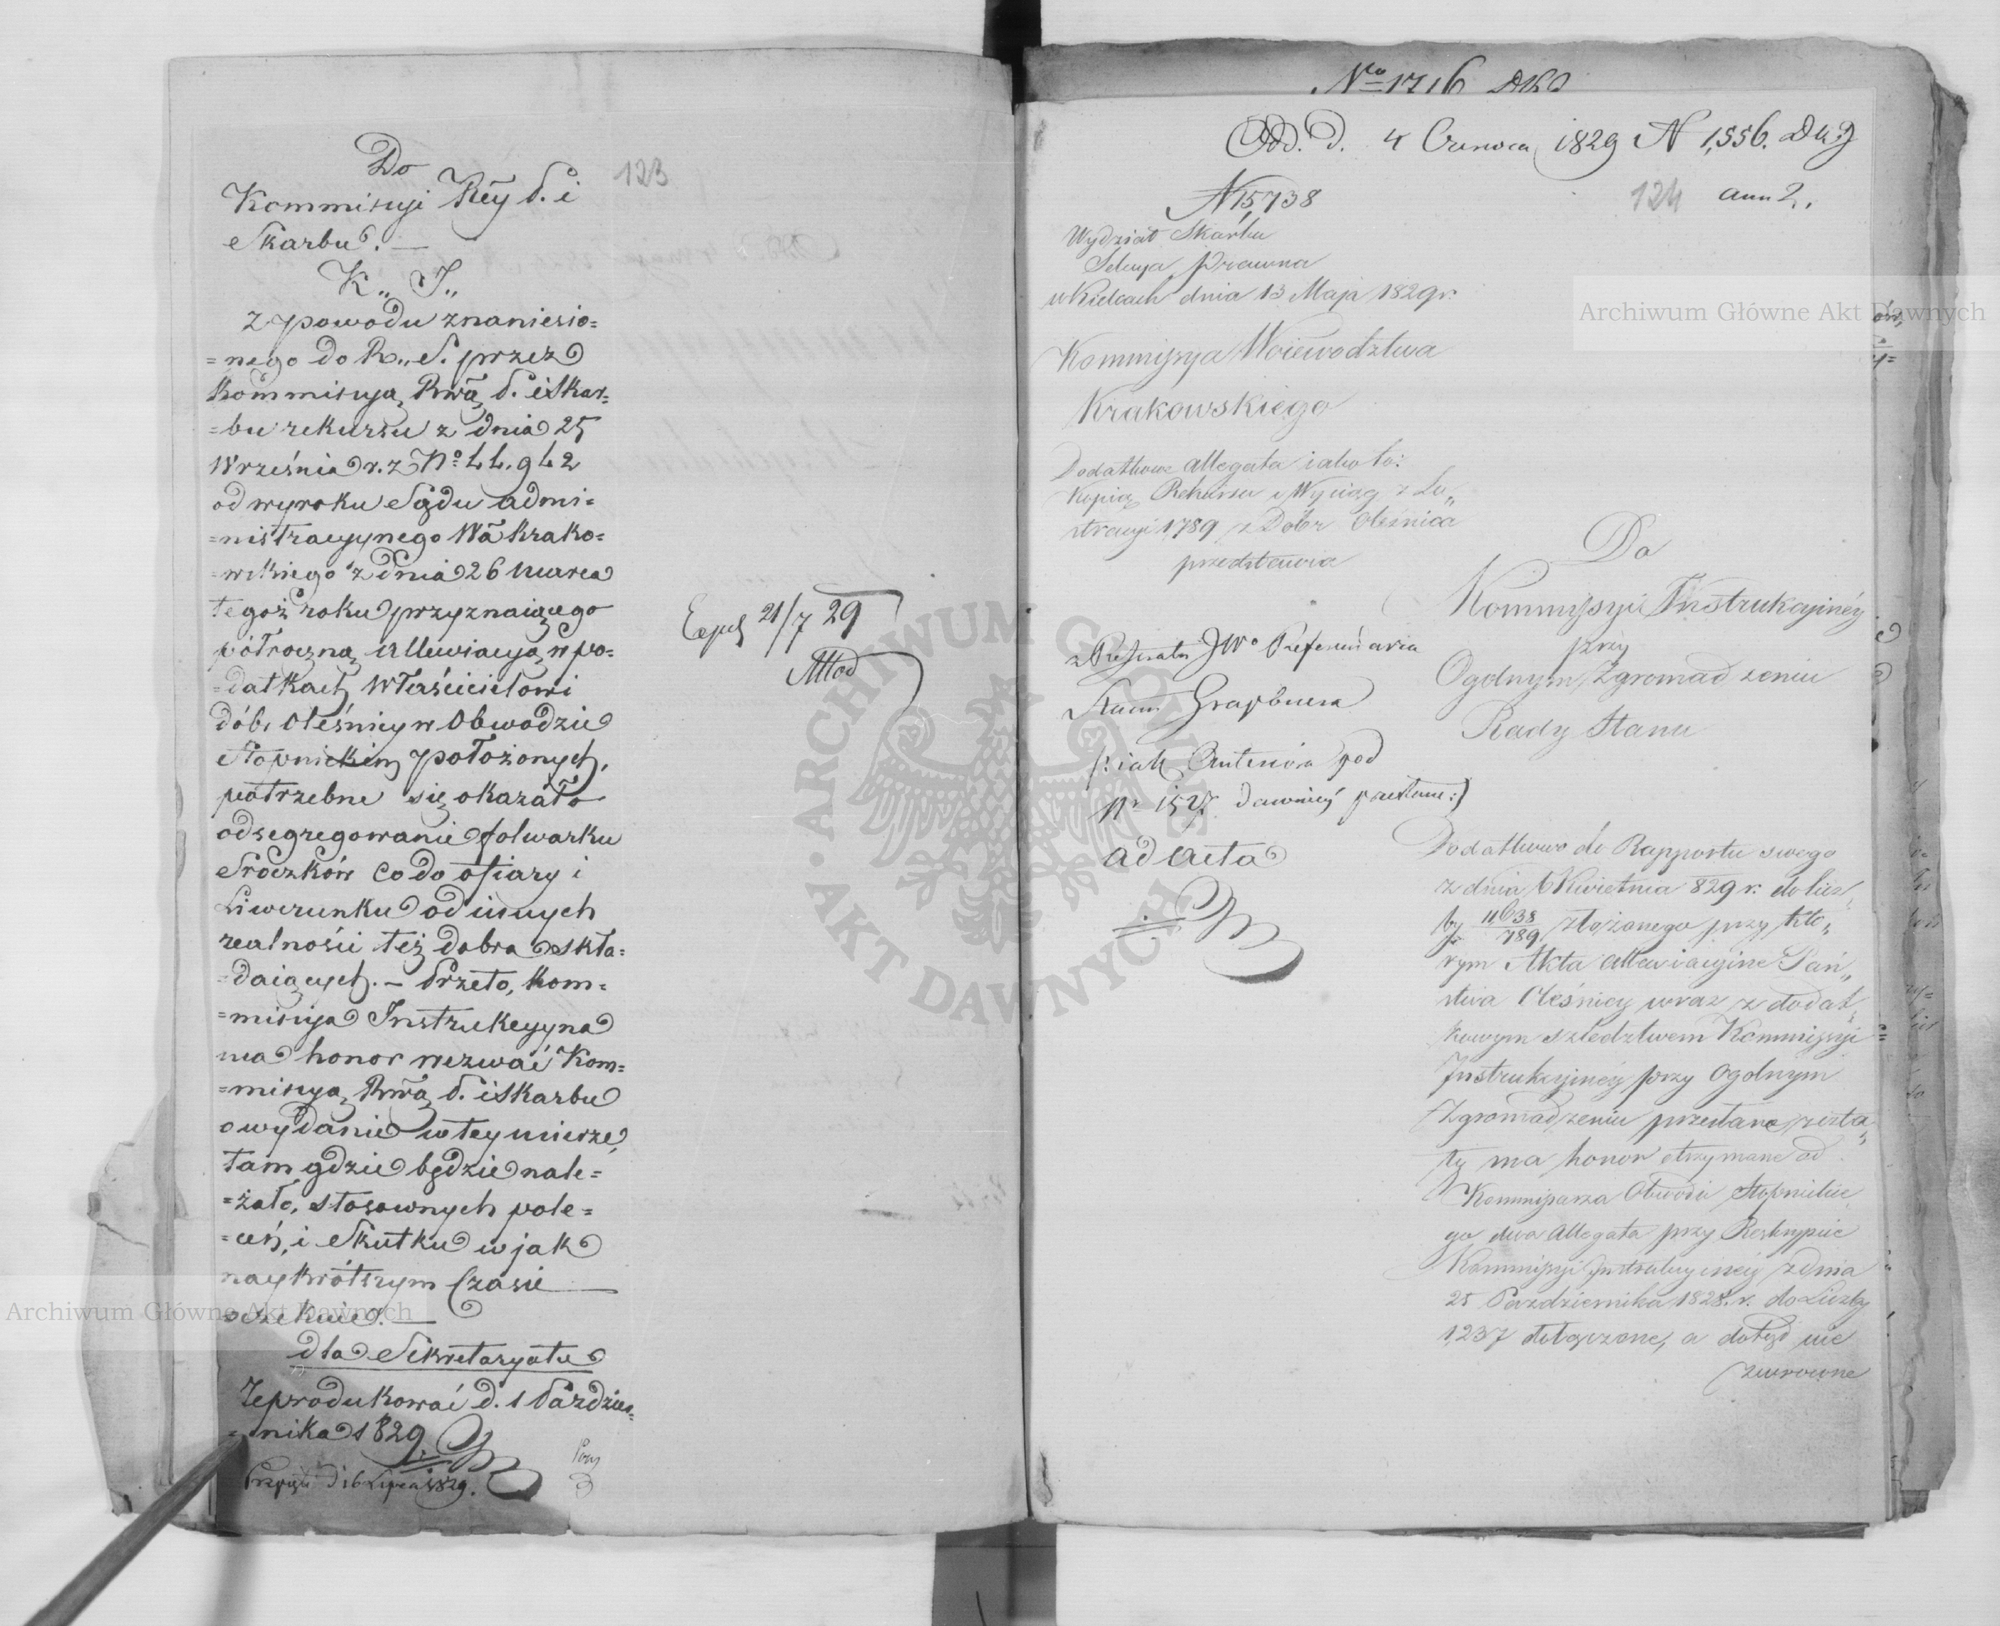 123
Do
Kommisyi Rey P. i
Skarbu. —
K„ J„
Z powodu zaniesio=
=nego do R„ S. przez
Kommisyą Rwą P. i Skar=
=bu rekursu z dnia 25
Września r. z. No 44.942
od wyroku Sądu admi=
=nistracyjnego Wa Krako=
=wskiego z dnia 26 marca
tegoż roku przyznaiącego
półroczną allewiacyą w po=
=datkach Właścicielowi
dóbr Oleśnicy w Obwodzie
Stopnickim położonych,
potrzebne się okazało
odsegregowanie folwarku
Sroczków co do ofiary i
Liwerunku od innych
realności też dobra skła=
=daiących. — Przeto, Kom=
=misyja Instrukcyyna
ma honor wezwać Kom=
=misyą Rwą P. i Skarbu
o wydanie w tey mierze,
tam gdzie będzie nale=
=żało, stosownych pole=
=ceń, i Skutku w jak
naykrótszym Czasie
oczekuie. —
dla Sekretaryatu
Zeprodukować d. 1 Paździer=
=nika 1829
d 16 Lipca 1829.
Exp 21/7 29
No 1716
Odd. d. 4 Czerwca 1829 N 1,556.
124
ann 2.
N 15,738
Wydział Skarbu
Sekcya Prawna
w Kielcach dnia 13 Maja 1829 r.
Kommissya Woiewodztwa
Krakowskiego
Dodatkowe allegata iako to:
Kopią Rekursu i Wyciąg z Lu„
stracyi 1789 z Dóbr Oleśnica
przedstawia
Do
Kommissyi Instrukcyinéy
przy
Ogolnym Zgromadzeniu
Rady Stanu
z Referatu JWo Referendarza
Stanu Grajbnera
pod
Nr 1527 dawniey
ad acta
Dodatkowo do Rapportu swego
z dnia 6 Kwietnia 829 r. do licz„
by 11638/789 złożonego przy któ„
rym Akta allewiacyine Pań„
stwa Oleśnicy wraz z dodat„
kowym szledztwem Kommissyi
Instrukcyinéy przy Ogolnym
Zgromadzeniu przesłane zosta„
ły ma honor otrzymane od
Kommissarza Obwodu Stopnickie„
go dwa Allegata przy Reskrypcie
Kommissyi Instrukcyinéy z dnia
25 Pazdziernika 1828. r. do Liczby
1,237 dołączone, a dotąd nie
zwrócone
Archiwum Główne Akt Dawnych
Archiwum Główne Akt Dawnych
ARCHIWUM GŁÓWNE • AKT DAWNYCH